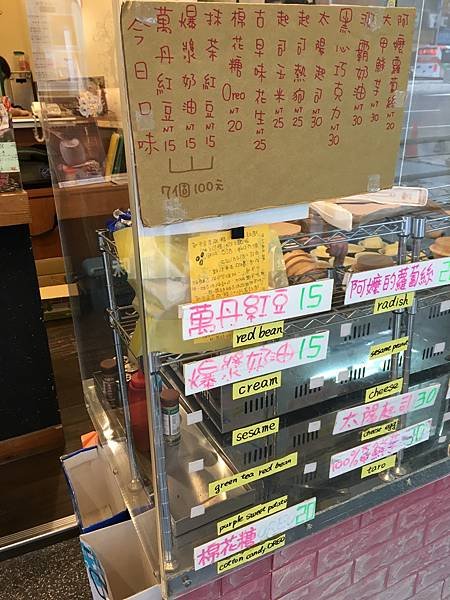 今日口味
萬丹紅豆NT15
爆漿奶油NT15
抹茶紅豆NT15
棉花糖Oreo NT20
古早味花生NT25
起司玉米NT25
起司熱狗NT30
太陽起司NT30
黑心巧克力NT30
霸奶油NT30
大甲鮮芋NT30
阿嬤蘿蔔絲NT20
7個100元
萬丹紅豆 15
red bean
爆漿奶油 15
cream
sesame
green tea red bean
purple sweet potato
棉花糖 20
cotton candy OREO
阿嬤的蘿蔔絲 2
radish
sesame peanut
cheese
太陽起司 30
cheese egg
100%
taro